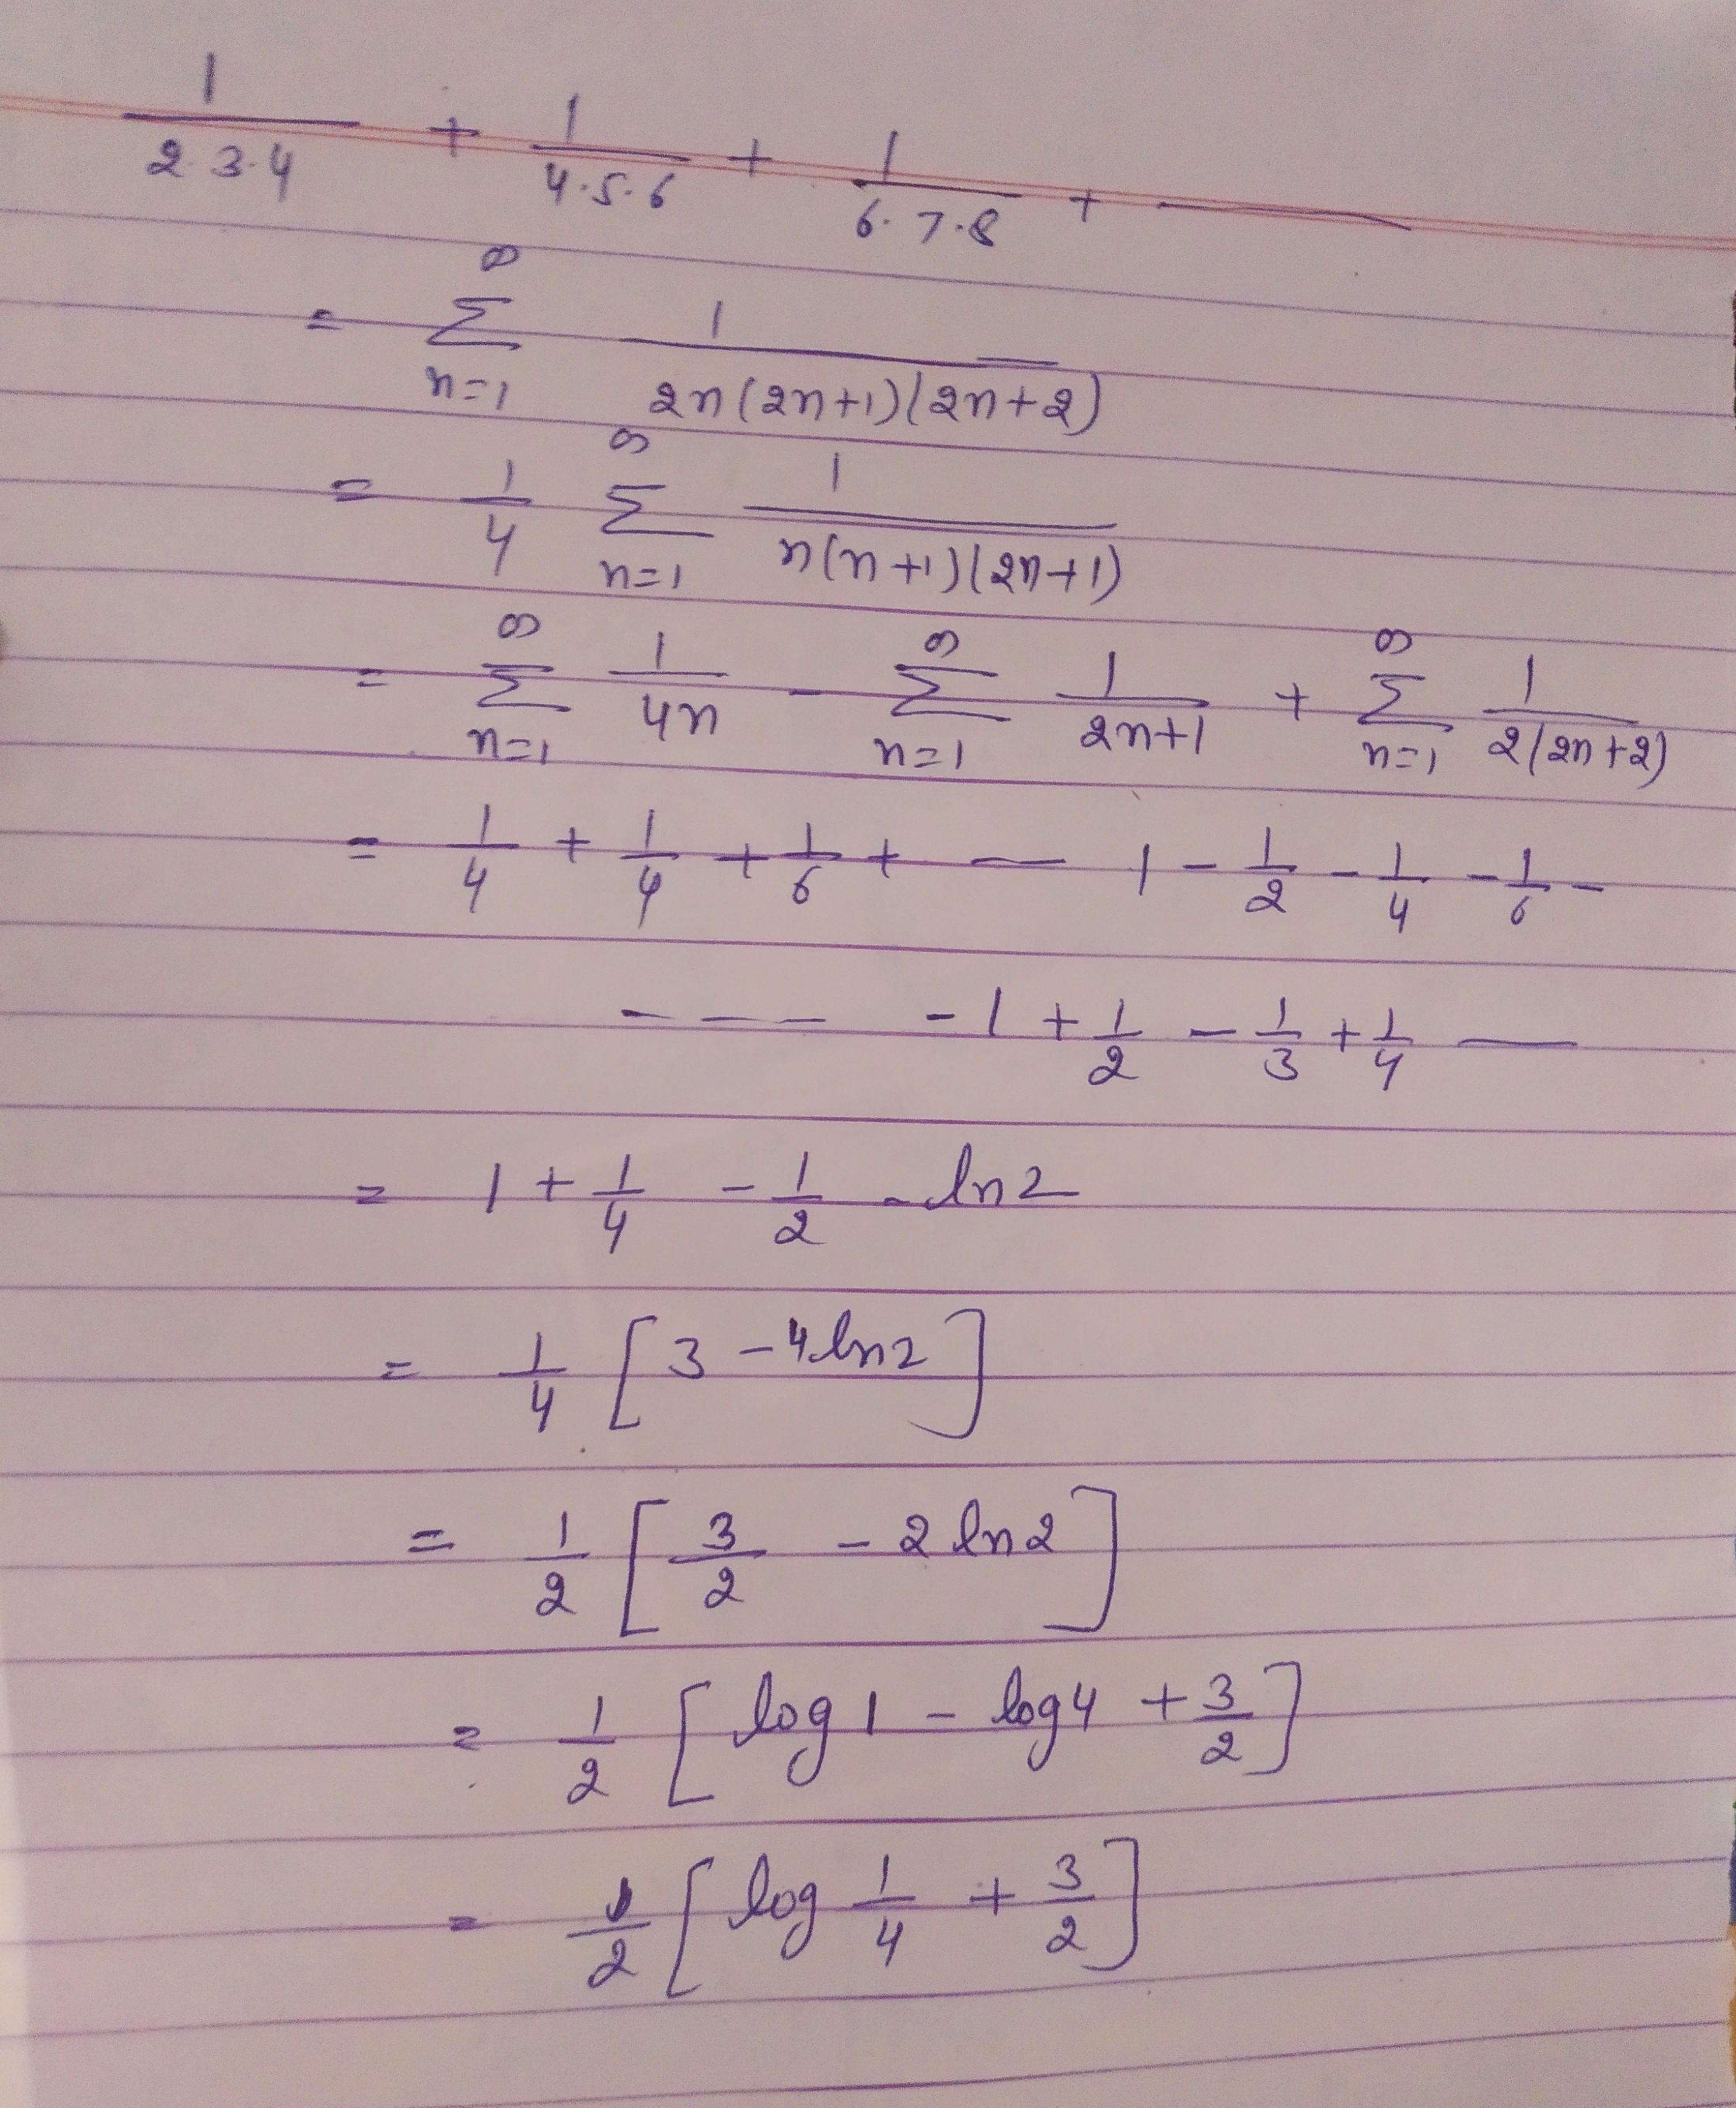 1/(2·3·4) + 1/(4·5·6) + 1/(6·7·8) + ——
= ∞Σn=1 1/(2n(2n+1)(2n+2))
= 1/4 ∞Σn=1 1/(n(n+1)(2n+1))
= ∞Σn=1 1/(4n) - ∞Σn=1 1/(2n+1) + ∞Σn=1 1/(2(2n+2))
= 1/4 + 1/4 + 1/6 + — 1 - 1/2 - 1/4 - 1/6 -
- — — - 1 + 1/2 - 1/3 + 1/4 —
= 1 + 1/4 - 1/2 - ln2
= 1/4 [3 - 4ln2]
= 1/2 [3/2 - 2 ln2]
= 1/2 [log 1 - log 4 + 3/2]
= 1/2 [log 1/4 + 3/2]